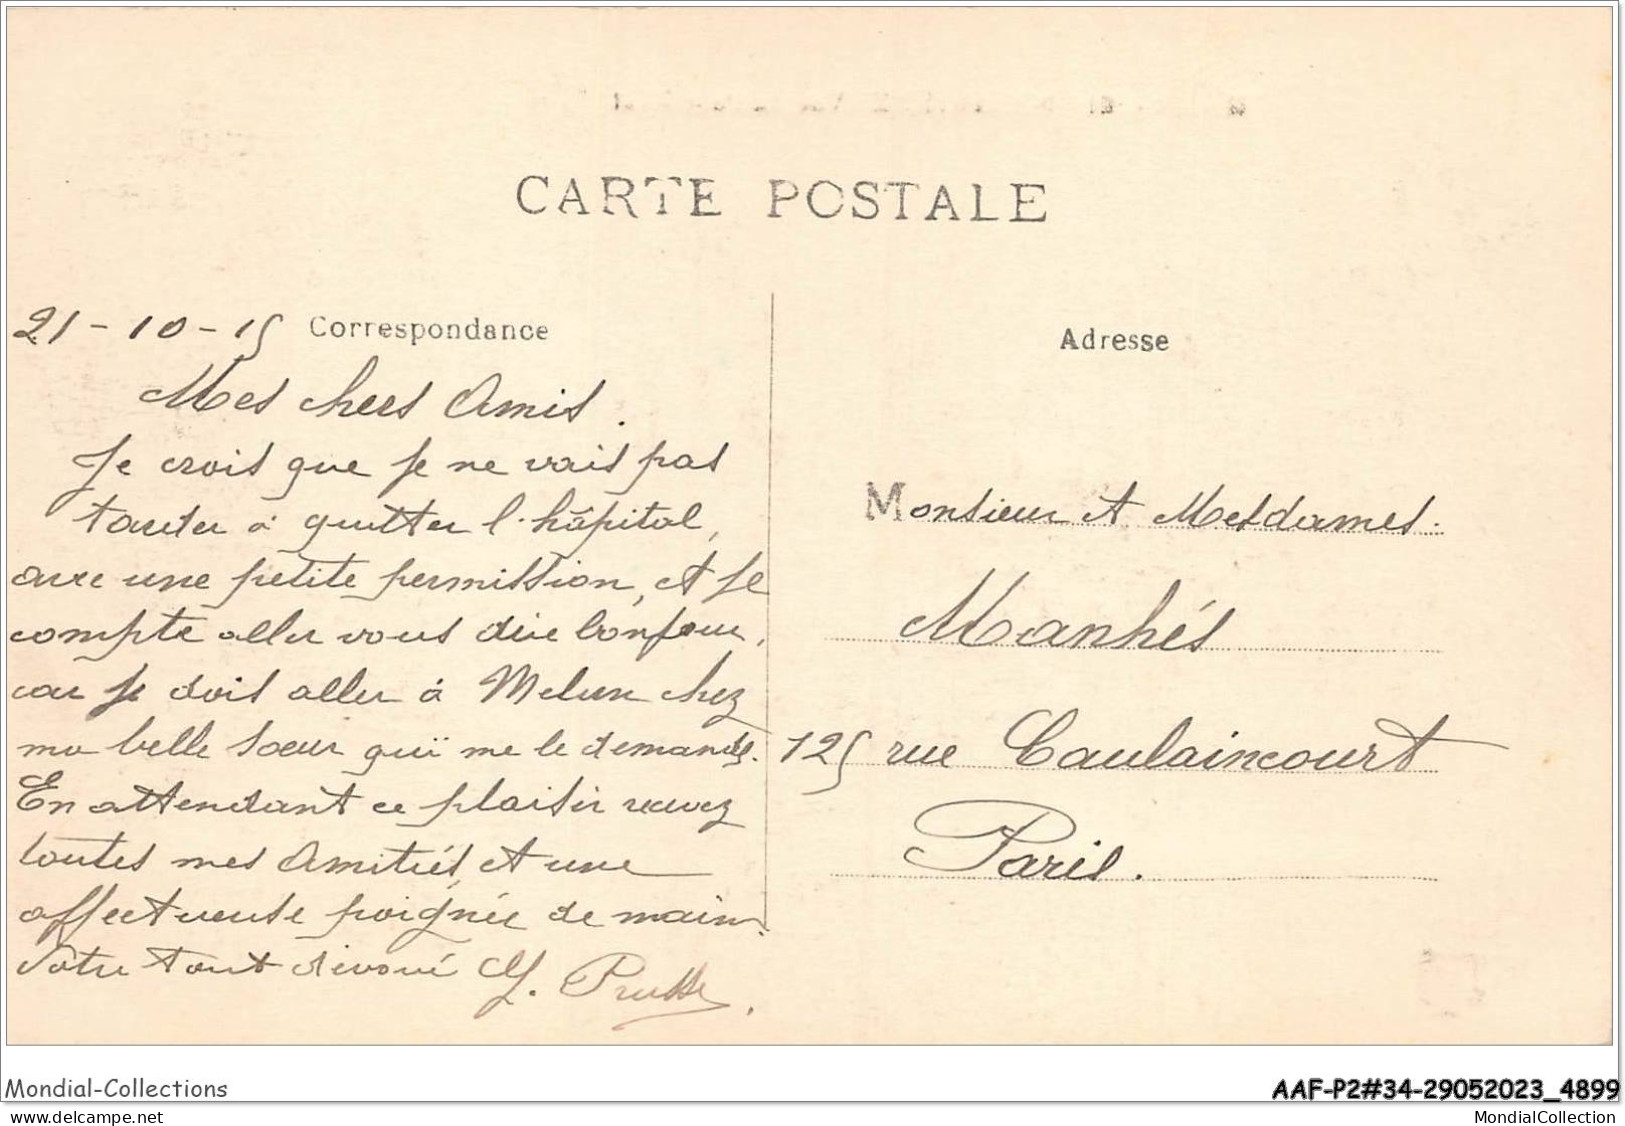 CARTE POSTALE
21-10-15 Correspondance
Mes chers Amis.
Je crois que je ne vais pas
tarder à quitter l'hôpital,
avec une petite permission, et je
compte aller vous dire bonjour,
car je dois aller à Melun chez
ma belle soeur qui me le demande.
En attendant ce plaisir recevez
toutes mes Amitiés, et une
affectueuse poignée de main.
Votre tout dévoué
Adresse
Monsieur et Mesdames.
Manhés
125 rue Caulaincourt
Paris.
Mondial-Collections
AAF-P2#34-29052023_4899
www.delcampe.net
MondialCollection